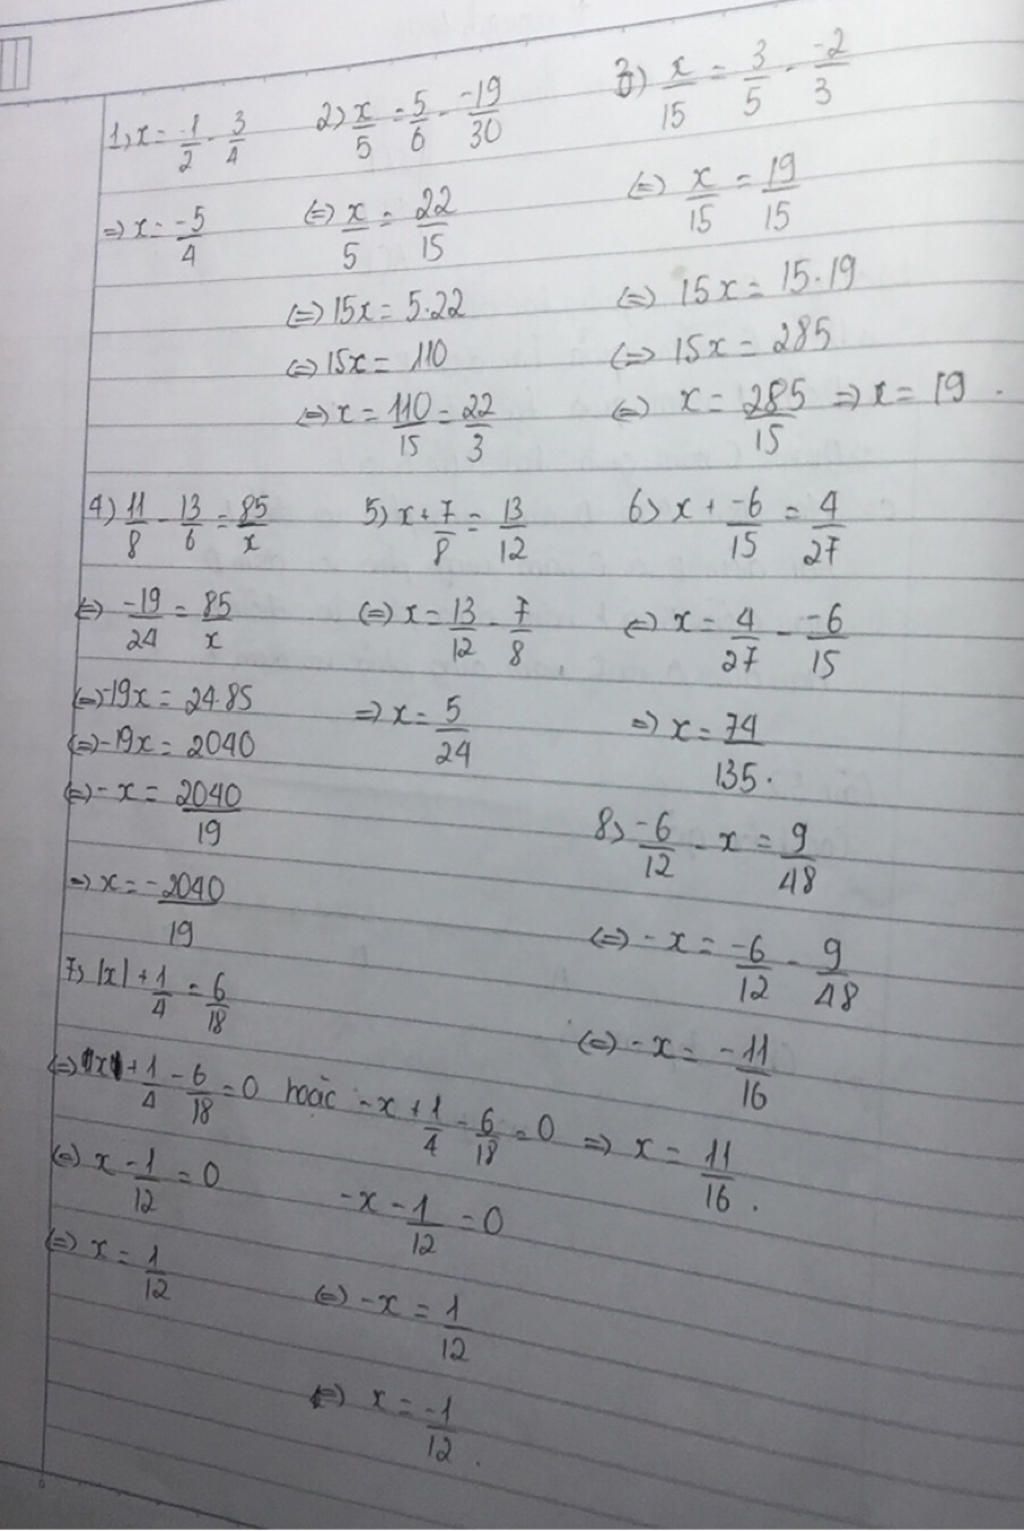 1, x = -1/2 - 3/4
⇒ x = -5/4
2) x/5 = 5/6 - -19/30
(=) x/5 = 22/15
(=) 15x = 5.22
(=) 15x = 110
(=) x = 110/15 = 22/3
3) x/15 = 3/5 - -2/3
(=) x/15 = 19/15
(=) 15x = 15.19
(=) 15x = 285
(=) x = 285/15 => x = 19.
4) 11/8 - 13/6 = 85/x
(=) -19/24 = 85/x
(=) -19x = 24.85
(=) -19x = 2040
(=) -x = 2040/19
=> x = -2040/19
5) x + 7/8 = 13/12
(=) x = 13/12 - 7/8
=> x = 5/24
6) x + -6/15 = 4/27
(=) x = 4/27 - -6/15
=> x = 74/135.
7) |x| + 1/4 = 6/18
(=) x + 1/4 - 6/18 = 0 hoặc -x + 1/4 - 6/18 = 0
(=) x - 1/12 = 0
-x - 1/12 = 0
(=) x = 1/12
(=) -x = 1/12
(=) x = -1/12.
8) -6/12 - x = 9/48
(=) -x = -6/12 - 9/48
(=) -x = -11/16
=> x = 11/16.